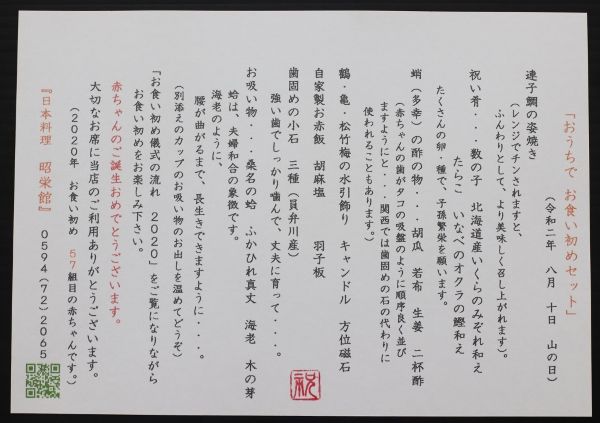 「おうちで お食い初めセット」
(令和二年 八月 十日 山の日)
連子鯛の姿焼き
(レンジでチンされますと、
ふんわりとして、より美味しく召し上がれます)。
祝い肴・・・数の子 北海道産いくらのみぞれ和え
たらこ いなべのオクラの鰹和え
たくさんの卵・種で、子孫繁栄を願います。
蛸(多幸)の酢の物・・・胡瓜 若布 生姜 二杯酢
(赤ちゃんの歯がタコの吸盤のように順序良く並び
ますようにと・・・関西では歯固めの石の代わりに
使われることもあります。)
鶴・亀・松竹梅の水引飾り キャンドル 方位磁石
自家製お赤飯 胡麻塩 羽子板
歯固めの小石 三種(員弁川産)
強い歯でしっかり噛んで、丈夫に育って・・・・。
お吸い物・・・桑名の蛤 ふかひれ真丈 海老 木の芽
蛤は、夫婦和合の象徴です。
海老のように、
腰が曲がるまで、長生きできますように・・・・。
(別添えのカップのお吸い物のお出しを温めてどうぞ)
「お食い初め儀式の流れ 2020」をご覧になりながら
お食い初めをお楽しみ下さい。
赤ちゃんのご誕生おめでとうございます。
大切なお席に当店のご利用ありがとうございます。
(2020年 お食い初め 57組目の赤ちゃんです。)
『日本料理 昭栄館』 0594(72)2065
祝